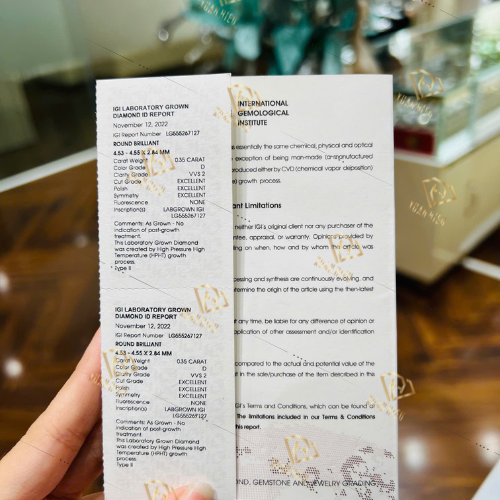 IGI LABORATORY GROWN
DIAMOND ID REPORT
November 12, 2022
IGI Report Number LG555267127
ROUND BRILLIANT
4.53 - 4.55 X 2.84 MM
Carat Weight 0.35 CARAT
Color Grade D
Clarity Grade VVS 2
Cut Grade EXCELLENT
Polish EXCELLENT
Symmetry EXCELLENT
Fluorescence NONE
Inscription(s) LABGROWN IGI
LG555267127
Comments: As Grown - No
indication of post-growth
treatment.
This Laboratory Grown Diamond
was created by High Pressure High
Temperature (HPHT) growth
process.
Type II
IGI LABORATORY GROWN
DIAMOND ID REPORT
November 12, 2022
IGI Report Number LG555267127
ROUND BRILLIANT
4.53 - 4.55 X 2.84 MM
Carat Weight 0.35 CARAT
Color Grade D
Clarity Grade VVS 2
Cut Grade EXCELLENT
Polish EXCELLENT
Symmetry EXCELLENT
Fluorescence NONE
Inscription(s) LABGROWN IGI
LG555267127
Comments: As Grown - No
indication of post-growth
treatment.
This Laboratory Grown Diamond
was created by High Pressure High
Temperature (HPHT) growth
process.
Type II
INTERNATIONAL
GEMOLOGICAL
INSTITUTE
essentially the same chemical, physical and optical
exception of being man-made (a manufactured
produced either by CVD (chemical vapor deposition)
growth process.
Limitations
neither IGI's original client nor any purchaser of the
appraisal, or warranty. Opinions provided by
on when, how and by whom the article was
and synthesis are continuously evolving, and
the origin of the article using the then-latest
any time, be liable for any difference of opinion or
application of other assessment and/or identification
compared to the actual and potential value of the
in the sale/purchase of the item described in the
Terms and Conditions, which can be found at
the limitations included in our Terms & Conditions
this report.
GEMSTONE AND JEWELRY GRADING
XUÂN HIẾU